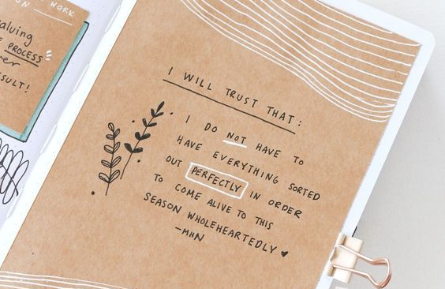 WORK
valuing
PROCESS
over
RESULT!
I WILL TRUST THAT:
I DO NOT HAVE TO
HAVE EVERYTHING SORTED
OUT PERFECTLY IN ORDER
TO COME ALIVE TO THIS
SEASON WHOLEHEARTEDLY ♥
-MHN